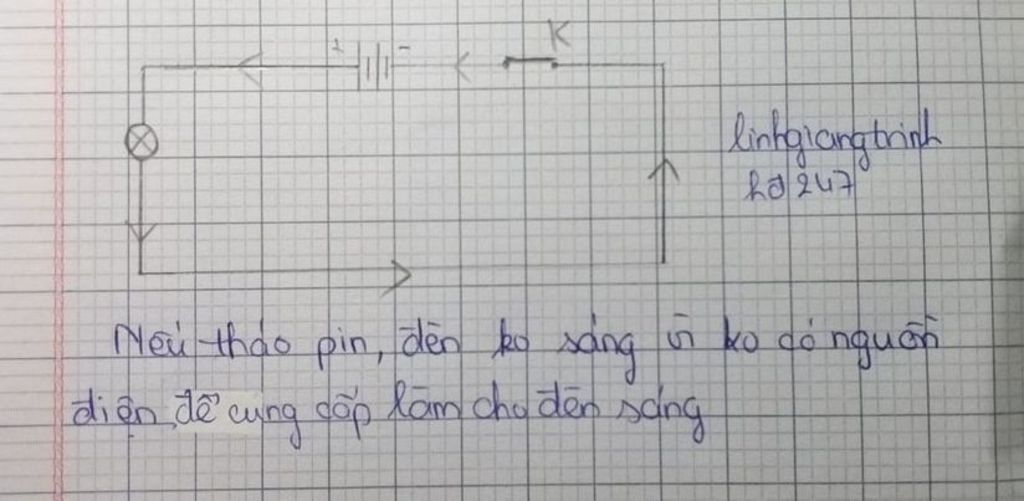 K
+ -
linhgiangtrinh
hđ 247
Nếu tháo pin, đèn ko sáng vì ko có nguồn
điện để cung cấp làm cho đèn sáng